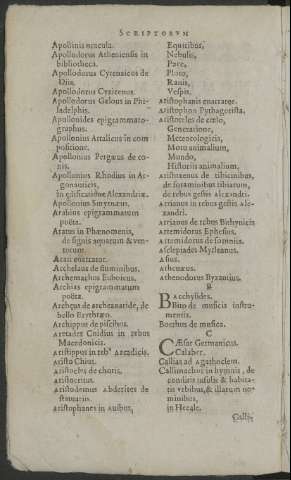 SCRIPTORVM
Apollinis oracula.
Apollodorus Atheniensis in
bibliotheca.
Apollodorus Cyrenaicus de
Diis.
Apollodorus Cyzicenus.
Apollodorus Gelous in Phi-
ladelphis.
Apollonides epigrammato-
graphus.
Apollonius Attalicus in com
positione.
Apollonius Pergæus de co-
nis.
Apollonius Rhodius in Ar-
gonauticis,
in ędificatione Alexandriæ.
Apollonius Smyrnæus.
Arabius epigrammatum
poëta.
Aratus in Phænomenis,
de signis aquarum & ven-
torum.
Arati enarrator.
Archelaus de fluminibus.
Archemachus Euboicus.
Archias epigrammatum
poëta.
Archęus de
bello Erythræo.
Archippus de piscibus.
Aretades Cnidius in rebus
Macedonicis.
Aristippus in rebꝰ Arcadicis.
Aristo Chius.
Aristocles de choris.
Aristocritus.
Aristodemus Abderites de
statuariis.
Aristophanes in Auibus,
Equitibus,
Nebulis,
Pace,
Pluto,
Ranis,
Vespis.
Aristophanis enarrator.
Aristophon Pythagorista.
Aristoteles de cœlo,
Generatione,
Meteorologicis,
Motu animalium,
Mundo,
Historiis animalium.
Aristoxenus de tibicinibus,
de foraminibus tibiarum,
de rebus gestis Alexandri.
Arrianus in rebus gestis Ale-
xandri.
Arrianus de rebus Bithynicis
Artemidorus Ephesius.
Artemidorus de somniis.
Asclepiades Myrleanus.
Asius.
Athenæus.
Athenodorus Byzantius.
B
BAcchylides.
Bito de musicis instru-
mentis.
Boethus de musica.
C
CÆsar Germanicus.
Calaber.
Callias ad Agathoclem.
Callimachus in hymnis, de
conditis insulis & habita-
tis vrbibus, & illarum no-
minibus,
in Hecale.
Calli-